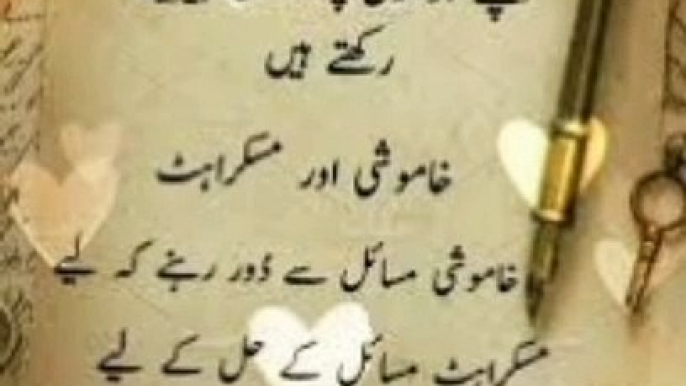 رکھتے ہیں
خاموشی اور مسکراہٹ
خاموشی مسائل سے دُور رہنے کہ لیے
مسکراہٹ مسائل کے حل کے لیے